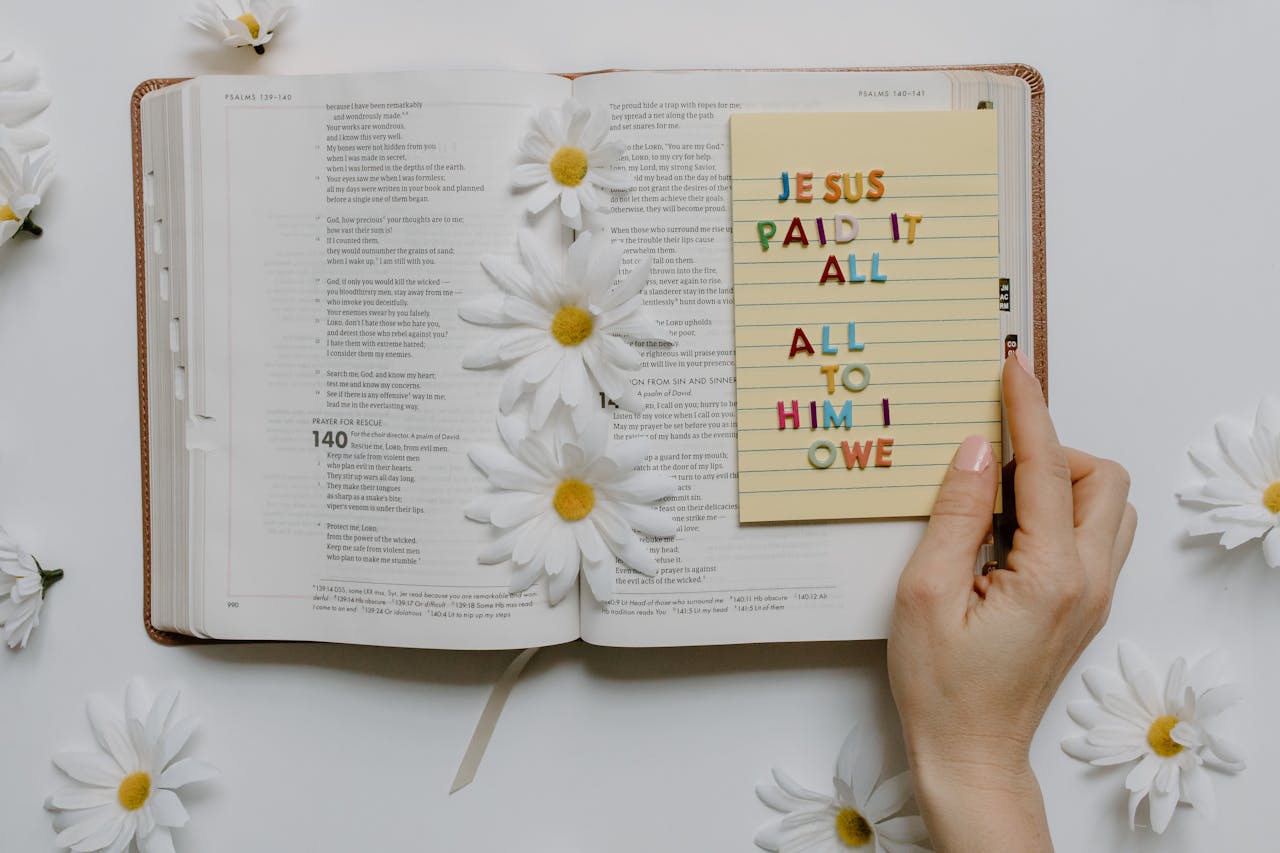 PSALMS 139–140
because I have been remarkably
and wondrously made.
Your works are wondrous,
and I know this very well.
My bones were not hidden from you
when I was made in secret,
when I was formed in the depths of the earth.
Your eyes saw me when I was formless;
all my days were written in your book and planned
before a single one of them began.
God, how precious your thoughts are to me;
how vast their sum is!
If I counted them,
they would outnumber the grains of sand;
when I wake up, I am still with you.
God, if only you would kill the wicked —
you bloodthirsty men, stay away from me —
who invoke you deceitfully.
Your enemies swear by you falsely.
LORD, don't I hate those who hate you,
and detest those who rebel against you?
I hate them with extreme hatred;
I consider them my enemies.
Search me, God, and know my heart;
test me and know my concerns.
See if there is any offensive way in me;
lead me in the everlasting way.
PRAYER FOR RESCUE
140 For the choir director. A psalm of David.
Rescue me, LORD, from evil men.
Keep me safe from violent men
who plan evil in their hearts.
They stir up wars all day long.
They make their tongues
as sharp as a snake's bite;
viper's venom is under their lips.
Protect me, LORD,
from the power of the wicked.
Keep me safe from violent men
who plan to make me stumble.
139:14 DSS, some LXX mss, Syr, Jer read because you are remarkable and won
derful 139:14 Hb obscure 139:17 Or difficult 139:18 Some Hb mss read
I come to an end 139:24 Or idolatrous 140:4 Lit to trip up my steps
990
PSALMS 140–141
The proud hide a trap with ropes for me;
they spread a net along the path
and set snares for me.
to the LORD, "You are my God."
LORD, to my cry for help.
my Lord, my strong Savior,
my head on the day of
do not grant the desires of the
do not let them achieve their goals.
Otherwise, they will become proud.
When those who surround me rise up
the trouble their lips cause
overwhelm them.
hot coals fall on them.
thrown into the fire,
never again to rise.
a slanderer stay in the land
relentlessly hunt down a
the LORD upholds
the poor,
for the needy.
the righteous will praise your
will live in your presence.
FROM SIN AND SINNERS
A psalm of David.
LORD, I call on you; hurry to
Listen to my voice when I call on you.
May my prayer be set before you as
raising of my hands as the evening
up a guard for my mouth;
watch at the door of my lips.
turn to any evil
acts
commit sin.
feast on their delicacies
one strike me —
love;
rebuke me —
my head;
Even my prayer is against
the evil acts of the wicked.
140:9 Lit Head of those who surround me 140:11 Hb obscure 140:12 Alt
Hb tradition reads You 141:5 Lit my head 141:5 Lit of them
JESUS
PAID IT
ALL
ALL
TO
HIM I
OWE
JN
AC
RM
CO